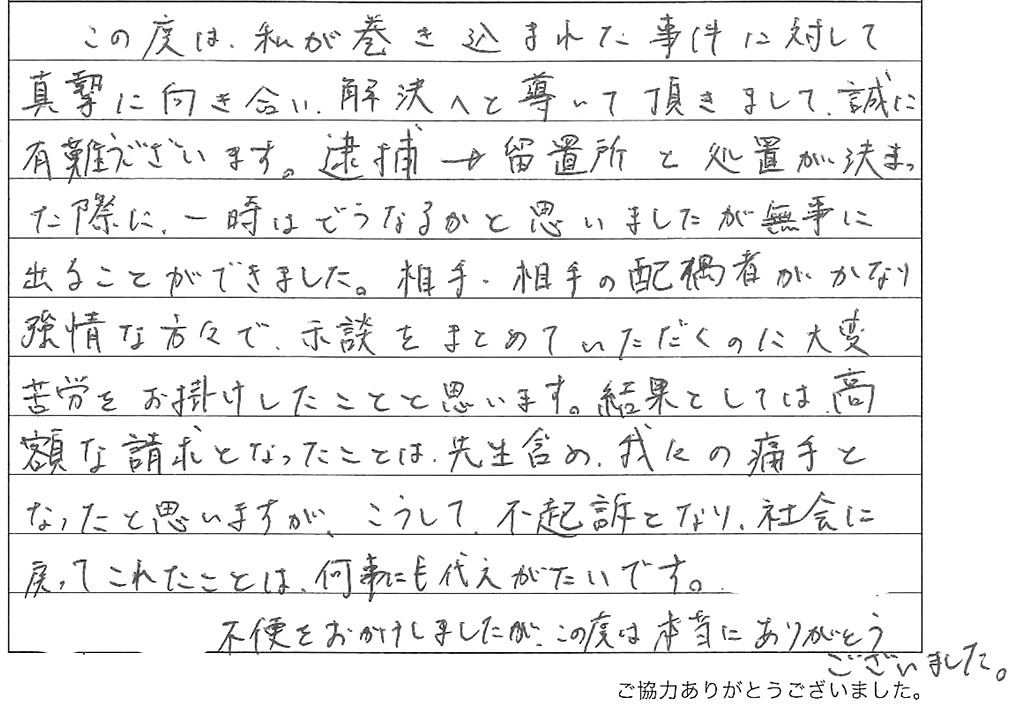 この度は、私が巻き込まれた事件に対して
真摯に向き合い、解決へと導いて頂きまして、誠に
有難うございます。逮捕→留置所と処置が決まっ
た際に、一時はどうなるかと思いましたが無事に
出ることができました。相手・相手の配偶者がかなり
強情な方々で、示談をまとめていただくのに大変
苦労をお掛けしたことと思います。結果としては、高
額な請求となったことは、先生含め、我々の痛手と
なったと思いますが、こうして、不起訴となり、社会に
戻ってこれたことは、何事にも代えがたいです。
不便をおかけしましたが、この度は本当にありがとう
ございました。
ご協力ありがとうございました。